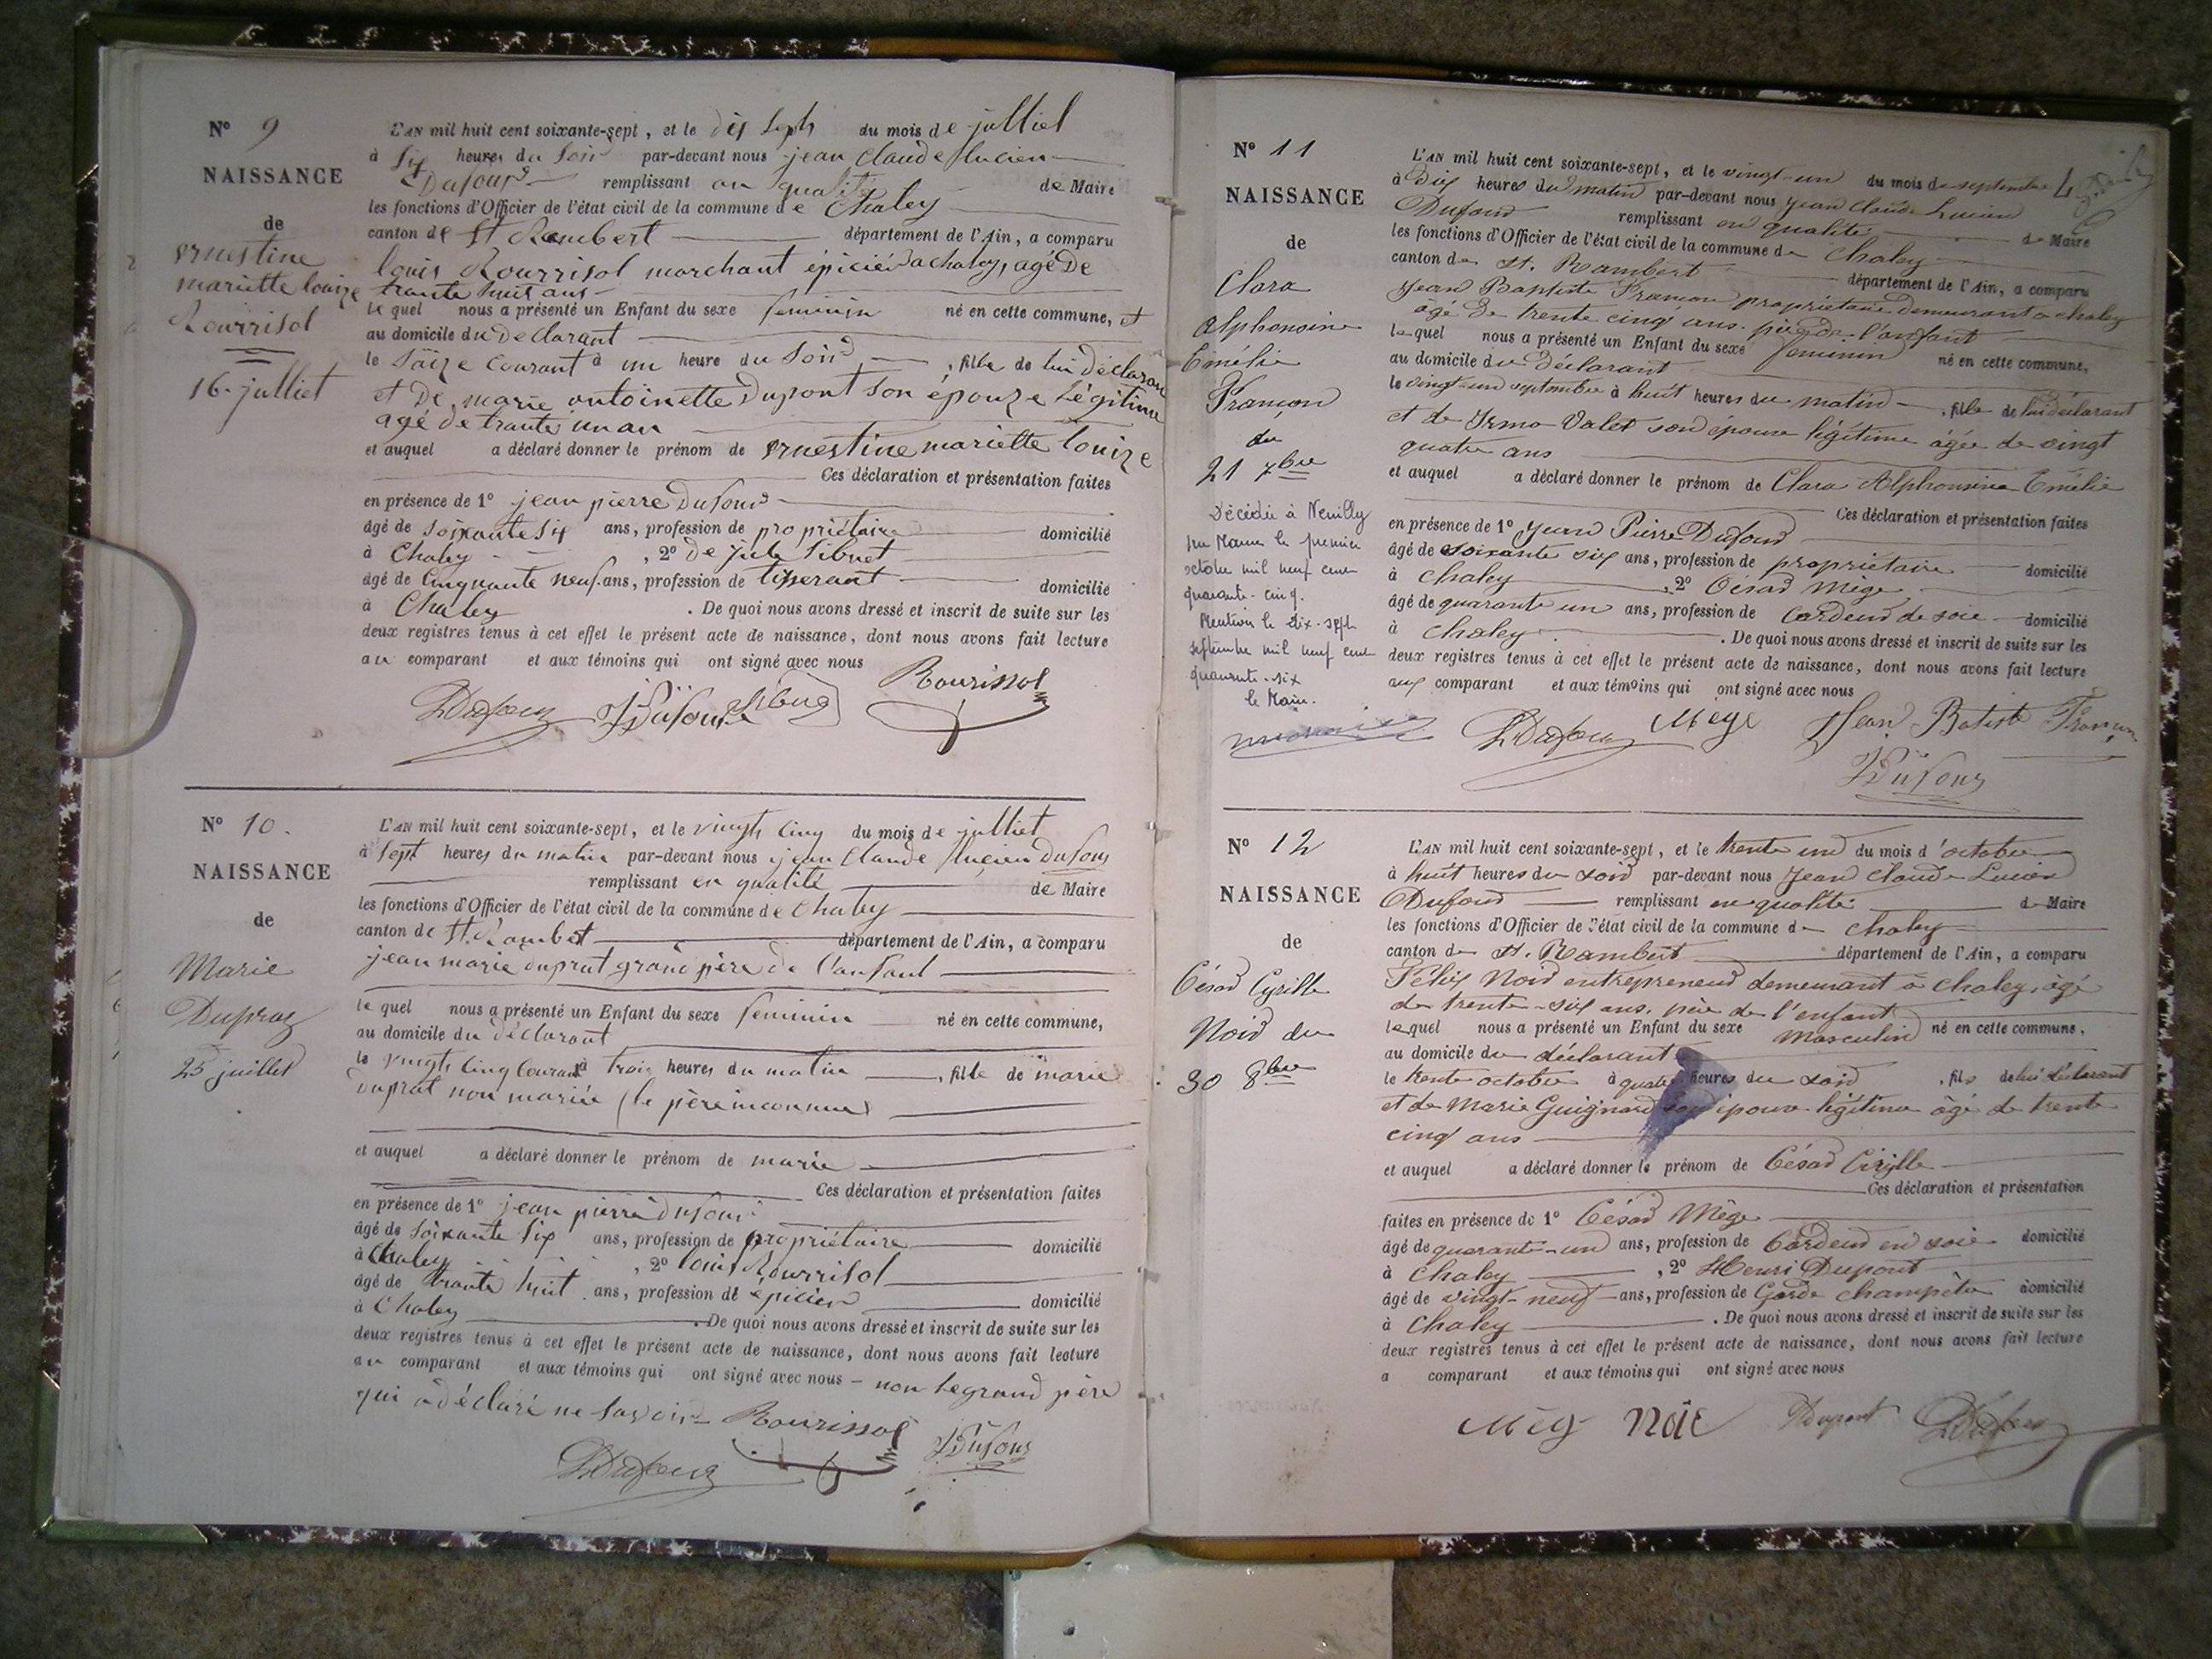 N° 9
NAISSANCE
de
ernestine
mariette louize
Rourrisol
16 julliet
L'AN mil huit cent soixante-sept, et le dix Sept du mois de julliet
à Six heures du Soir par-devant nous jean Claude lucien
Dufour remplissant en qualité de Maire
les fonctions d'Officier de l'état civil de la commune de Chaley
canton de St Rambert département de l'Ain, a comparu
louis Rourrisol marchant épicier a chaley, agé De
trante huit ans
lequel nous a présenté un Enfant du sexe feminin né en cette commune, et
au domicile du Declarant
le Saize courant à une heure du Soir, fille de lui déclarant
et De marie antoinette Dupont son épouze Légitime
agé de trante un an
et auquel a déclaré donner le prénom de ernestine mariette louize
Ces déclaration et présentation faites
en présence de 1° jean pierre Dufour
âgé de soixante six ans, profession de propriétaire domicilié
à Chaley, 2° de jule Sibuet
âgé de Cinquante neuf ans, profession de tisserant domicilié
à Chaley. De quoi nous avons dressé et inscrit de suite sur les
deux registres tenus à cet effet le présent acte de naissance, dont nous avons fait lecture
au comparant et aux témoins qui ont signé avec nous
LDufour JPDufour Sibuet Rourissol
N° 10.
NAISSANCE
de
Marie
Dupraz
25 juillet
L'AN mil huit cent soixante-sept, et le vingts Cinq du mois de julliet
à Sept heures du matin par-devant nous jean Claude lucien Dufour
remplissant en qualité de Maire
les fonctions d'Officier de l'état civil de la commune de Chaley
canton de St. Rambet département de l'Ain, a comparu
jean marie duprat grand père de l'anfant
lequel nous a présenté un Enfant du sexe feminin né en cette commune,
au domicile du déclarant
le vingts Cinq Courant à trois heures du matin, fille de marie
duprat non mariée (le père inconnue)
et auquel a déclaré donner le prénom de marie
Ces déclaration et présentation faites
en présence de 1° jean pierre dufour
âgé de Soixante Six ans, profession de propriétaire domicilié
à Chaley, 2° louis Rourrisol
âgé de trante huit ans, profession de epicier domicilié
à Chaley. De quoi nous avons dressé et inscrit de suite sur les
deux registres tenus à cet effet le présent acte de naissance, dont nous avons fait lecture
au comparant et aux témoins qui ont signé avec nous - non le grand père
qui a déclaré ne Savoir Rourissol
LDufour JPDufour
N° 11
NAISSANCE
de
Clara
Alphonsine
Emélie
Framçon
du
21 7bre
Décédée à Neuilly
sur Marne le premier
octobre mil neuf cent
quarante-cinq.
Mention le dix-sept
septembre mil neuf cent
quarante-six
le Maire.
L'AN mil huit cent soixante-sept, et le vingt-un du mois de septembre
à Dix heures du matin par-devant nous Jean Claude Lucien
Dufour remplissant en qualité de Maire
les fonctions d'Officier de l'état civil de la commune de Chaley
canton de St. Rambert département de l'Ain, a comparu
Jean Baptiste Framçon propriétaire demeurant à chaley
âgé de trente cinq ans. père de l'enfant
lequel nous a présenté un Enfant du sexe feminin né en cette commune,
au domicile du déclarant
le vingt-un septembre à huit heures du matin, fille de lui déclarant
et de Irma Valet son épouse légitime âgée de vingt
quatre ans
et auquel a déclaré donner le prénom de Clara Alphonsine Emélie
Ces déclaration et présentation faites
en présence de 1° Jean Pierre Dufour
âgé de soixante six ans, profession de propriétaire domicilié
à Chaley, 2° César Mège
âgé de quarante un ans, profession de Cardeur de soie domicilié
à Chaley. De quoi nous avons dressé et inscrit de suite sur les
deux registres tenus à cet effet le présent acte de naissance, dont nous avons fait lecture
aux comparant et aux témoins qui ont signé avec nous
LDufour Mège Jean Batiste Framçon
JPDufour
N° 12
NAISSANCE
de
César Cyrille
Noir du
30 8bre
L'AN mil huit cent soixante-sept, et le trente un du mois d'octobre
à huit heures du soir par-devant nous Jean Claude Lucien
Dufour remplissant en qualité de Maire
les fonctions d'Officier de l'état civil de la commune de Chaley
canton de St. Rambert département de l'Ain, a comparu
Félix Noir entrepreneur demeurant à Chaley, âgé
de trente-six ans, père de l'enfant
lequel nous a présenté un Enfant du sexe Masculin né en cette commune,
au domicile du déclarant
le trente octobre à quatre heures du soir, fils de lui déclarant
et de Marie Guignard son épouse légitime âgé de trente
cinq ans
et auquel a déclaré donner le prénom de César Cirylle
Ces déclaration et présentation
faites en présence de 1° César Mège
âgé de quarante-un ans, profession de Cardeur en soie domicilié
à Chaley, 2° Henri Dupont
âgé de vingt-neuf ans, profession de Garde champêtre domicilié
à Chaley. De quoi nous avons dressé et inscrit de suite sur les
deux registres tenus à cet effet le présent acte de naissance, dont nous avons fait lecture
a comparant et aux témoins qui ont signé avec nous
Mèg Noir Dupont LDufour